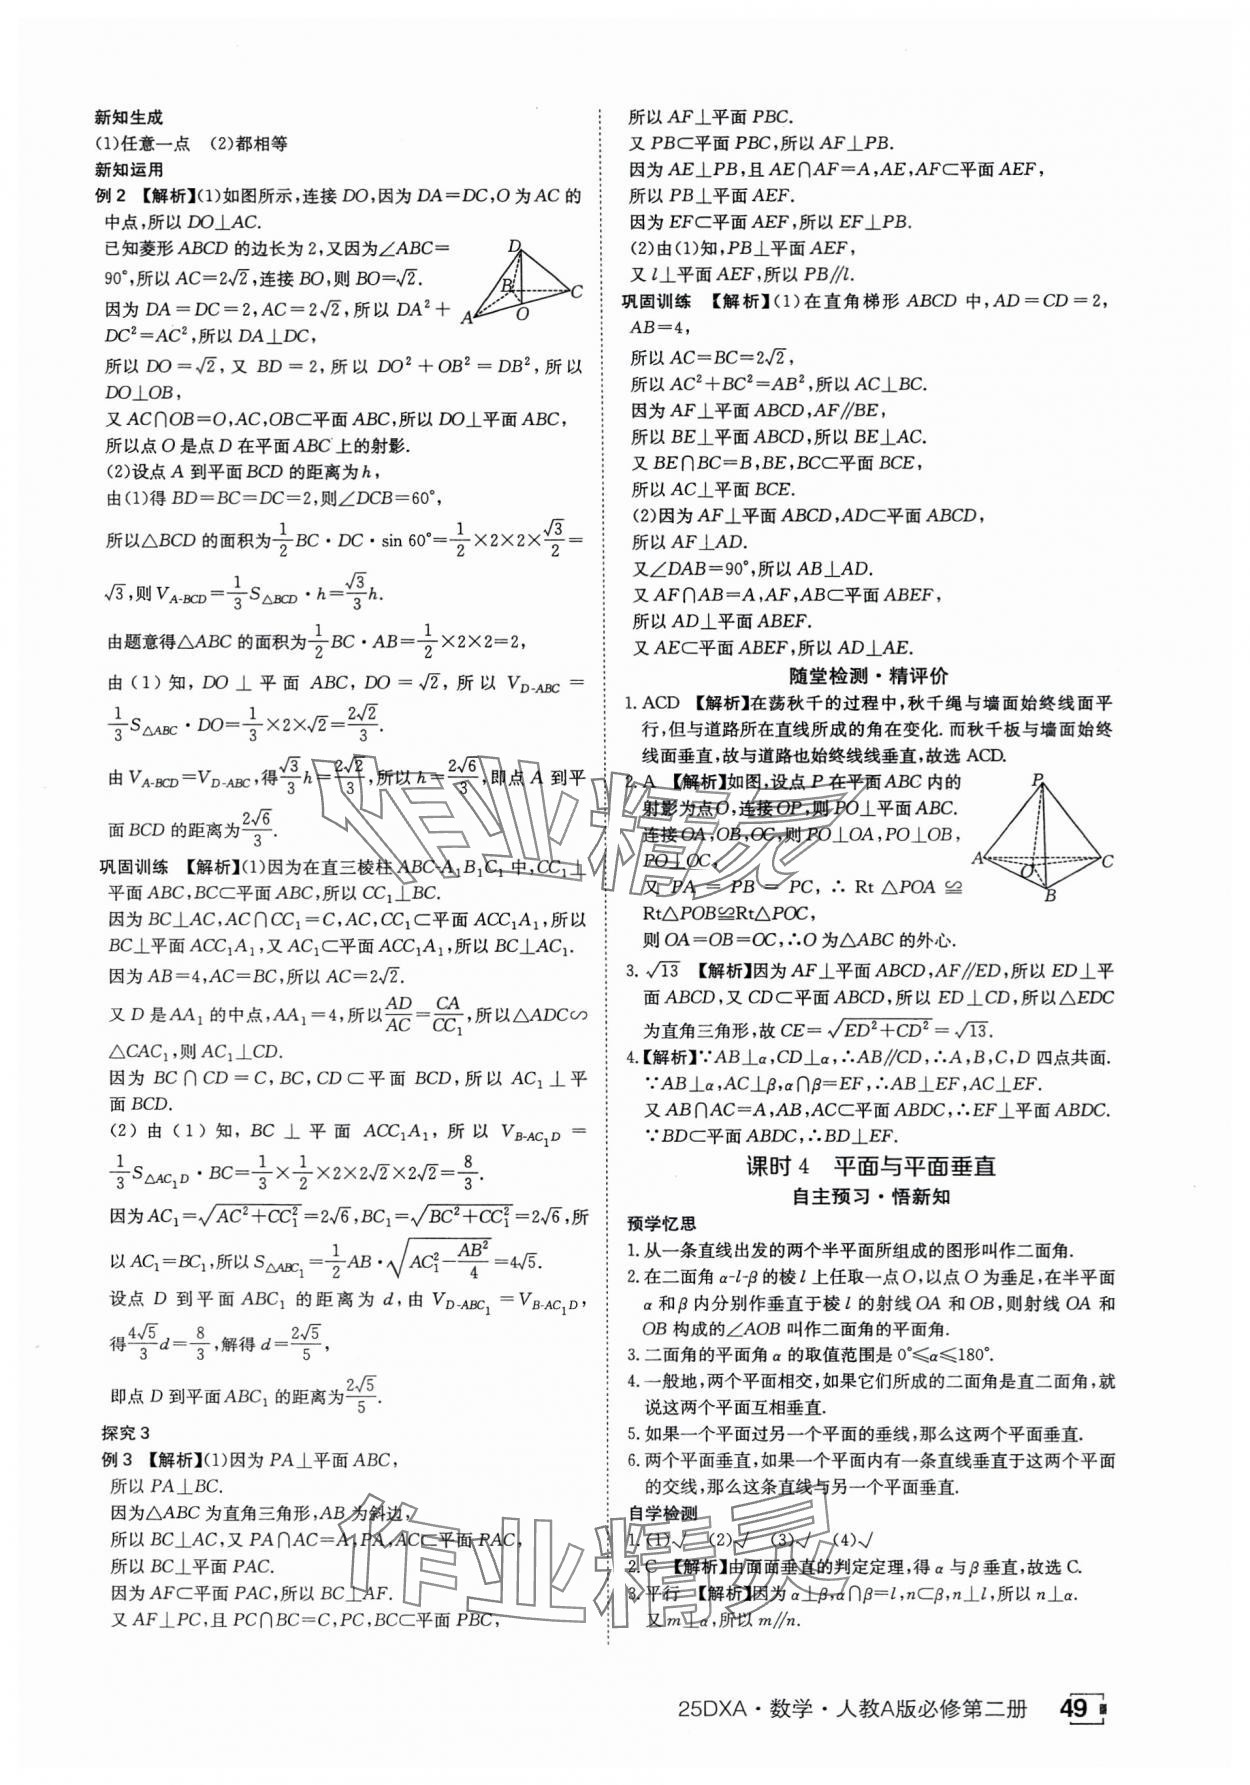 新知生成
(1)任意一点 (2)都相等
新知运用
例2 【解析】(1)如图所示,连接DO,因为DA=DC,O为AC的
中点,所以DO⊥AC.
已知菱形ABCD的边长为2,又因为∠ABC=
90°,所以AC=2√2,连接BO,则BO=√2.
因为DA=DC=2,AC=2√2,所以DA²+
DC²=AC²,所以DA⊥DC,
所以DO=√2,又BD=2,所以DO²+OB²=DB²,所以
DO⊥OB,
又AC∩OB=O,AC,OB⊂平面ABC,所以DO⊥平面ABC,
所以点O是点D在平面ABC上的射影.
(2)设点A到平面BCD的距离为h,
由(1)得BD=BC=DC=2,则∠DCB=60°,
所以△BCD的面积为1/2 BC·DC·sin 60°=1/2×2×2×√3/2=
√3,则V_{A-BCD}=1/3 S_{△BCD}·h=√3/3 h.
由题意得△ABC的面积为1/2 BC·AB=1/2×2×2=2,
由(1)知,DO⊥平面ABC,DO=√2,所以V_{D-ABC}=
1/3 S_{△ABC}·DO=1/3×2×√2=2√2/3.
由V_{A-BCD}=V_{D-ABC},得√3/3 h=2√2/3,所以h=2√6/3,即点A到平
面BCD的距离为2√6/3.
巩固训练 【解析】(1)因为在直三棱柱ABC-A₁B₁C₁中,CC₁⊥
平面ABC,BC⊂平面ABC,所以CC₁⊥BC.
因为BC⊥AC,AC∩CC₁=C,AC,CC₁⊂平面ACC₁A₁,所以
BC⊥平面ACC₁A₁,又AC₁⊂平面ACC₁A₁,所以BC⊥AC₁.
因为AB=4,AC=BC,所以AC=2√2.
又D是AA₁的中点,AA₁=4,所以AD/AC=CA/CC₁,所以△ADC∽
△CAC₁,则AC₁⊥CD.
因为BC∩CD=C,BC,CD⊂平面BCD,所以AC₁⊥平
面BCD.
(2)由(1)知,BC⊥平面ACC₁A₁,所以V_{B-AC₁D}=
1/3 S_{△AC₁D}·BC=1/3×1/2×2×2√2×2√2=8/3.
因为AC₁=√(AC²+CC₁²)=2√6,BC₁=√(BC²+CC₁²)=2√6,所
以AC₁=BC₁,所以S_{△ABC₁}=1/2 AB·√(AC₁²-AB²/4)=4√5.
设点D到平面ABC₁的距离为d,由V_{D-ABC₁}=V_{B-AC₁D},
得4√5/3 d=8/3,解得d=2√5/5,
即点D到平面ABC₁的距离为2√5/5.
探究3
例3 【解析】(1)因为PA⊥平面ABC,
所以PA⊥BC.
因为△ABC为直角三角形,AB为斜边,
所以BC⊥AC,又PA∩AC=A,PA,AC⊂平面PAC,
所以BC⊥平面PAC.
因为AF⊂平面PAC,所以BC⊥AF.
又AF⊥PC,且PC∩BC=C,PC,BC⊂平面PBC,
所以AF⊥平面PBC.
又PB⊂平面PBC,所以AF⊥PB.
因为AE⊥PB,且AE∩AF=A,AE,AF⊂平面AEF,
所以PB⊥平面AEF.
因为EF⊂平面AEF,所以EF⊥PB.
(2)由(1)知,PB⊥平面AEF,
又l⊥平面AEF,所以PB∥l.
巩固训练 【解析】(1)在直角梯形ABCD中,AD=CD=2,
AB=4,
所以AC=BC=2√2,
所以AC²+BC²=AB²,所以AC⊥BC.
因为AF⊥平面ABCD,AF∥BE,
所以BE⊥平面ABCD,所以BE⊥AC.
又BE∩BC=B,BE,BC⊂平面BCE,
所以AC⊥平面BCE.
(2)因为AF⊥平面ABCD,AD⊂平面ABCD,
所以AF⊥AD.
又∠DAB=90°,所以AB⊥AD.
又AF∩AB=A,AF,AB⊂平面ABEF,
所以AD⊥平面ABEF.
又AE⊂平面ABEF,所以AD⊥AE.
随堂检测·精评价
1. ACD 【解析】在荡秋千的过程中,秋千绳与墙面始终线面平
行,但与道路所在直线所成的角在变化.而秋千板与墙面始终
线面垂直,故与道路也始终线线垂直,故选ACD.
2. A 【解析】如图,设点P在平面ABC内的
射影为点O,连接OP,则PO⊥平面ABC.
连接OA,OB,OC,则PO⊥OA,PO⊥OB,
PO⊥OC,
又PA=PB=PC,∴Rt△POA≌
Rt△POB≌Rt△POC,
则OA=OB=OC,∴O为△ABC的外心.
3. √13 【解析】因为AF⊥平面ABCD,AF∥ED,所以ED⊥平
面ABCD,又CD⊂平面ABCD,所以ED⊥CD,所以△EDC
为直角三角形,故CE=√(ED²+CD²)=√13.
4.【解析】∵AB⊥α,CD⊥α,∴AB∥CD,∴A,B,C,D四点共面.
∵AB⊥α,AC⊥β,α∩β=EF,∴AB⊥EF,AC⊥EF.
又AB∩AC=A,AB,AC⊂平面ABDC,∴EF⊥平面ABDC.
∵BD⊂平面ABDC,∴BD⊥EF.
课时4 平面与平面垂直
自主预习·悟新知
预学忆思
1. 从一条直线出发的两个半平面所组成的图形叫作二面角.
2. 在二面角α-l-β的棱l上任取一点O,以点O为垂足,在半平面
α和β内分别作垂直于棱l的射线OA和OB,则射线OA和
OB构成的∠AOB叫作二面角的平面角.
3. 二面角的平面角α的取值范围是0°≤α≤180°.
4. 一般地,两个平面相交,如果它们所成的二面角是直二面角,就
说这两个平面互相垂直.
5. 如果一个平面过另一个平面的垂线,那么这两个平面垂直.
6. 两个平面垂直,如果一个平面内有一条直线垂直于这两个平面
的交线,那么这条直线与另一个平面垂直.
自学检测
1. (1)√ (2)√ (3)√ (4)√
2. C 【解析】由面面垂直的判定定理,得α与β垂直,故选C.
3. 平行 【解析】因为α⊥β,α∩β=l,n⊂β,n⊥l,所以n⊥α.
又m⊥α,所以m∥n.
D
B
C
A
O
P
A
O
C
B
作业精灵
作业精灵
25DXA·数学·人教A版必修第二册 49